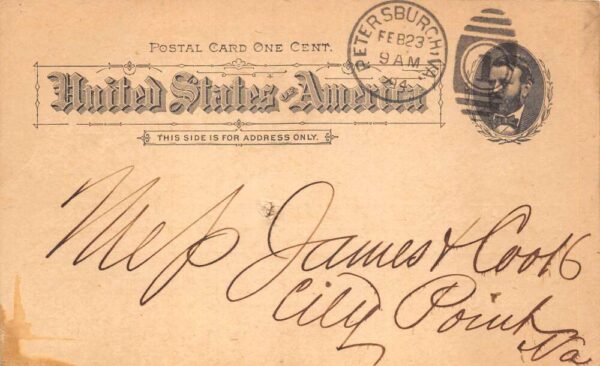 POSTAL CARD ONE CENT.
United States of America
THIS SIDE IS FOR ADDRESS ONLY.
PETERSBURCH, VA.
FEB 23
9 AM
94
1
James & Cook
City Point
Va